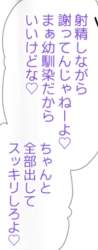 射精しながら
謝ってんじゃねーよ♡
まぁ幼馴染だから
いいけどな♡
ちゃんと
全部出して
スッキリしろよ♡